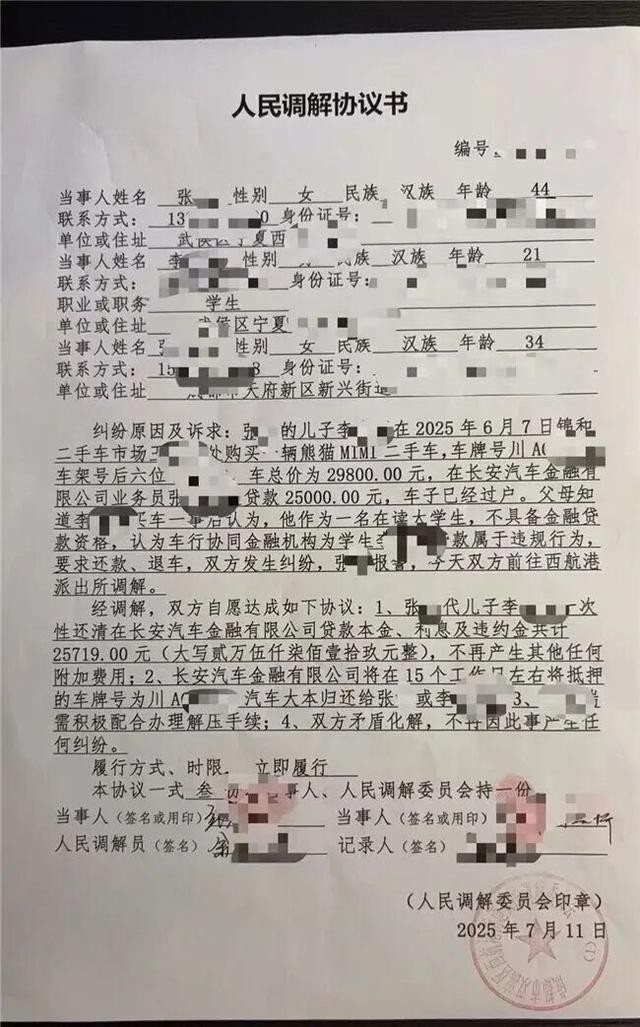 人民调解协议书
编号
当事人姓名 张 性别 女 民族 汉族 年龄 44
联系方式: 13 0 身份证号:
单位或住址 武侯区宁夏西
当事人姓名 李 性别 民族 汉族 年龄 21
联系方式: 身份证号:
职业或职务 学生
单位或住址 武侯区宁夏
当事人姓名 张 性别 女 民族 汉族 年龄 34
联系方式: 15 8 身份证号:
单位或住址 成都市天府新区新兴街道
纠纷原因及诉求:张 的儿子李 在2025年6月7日锦和
二手车市场三 处购买一辆熊猫MIMI二手车,车牌号川A
车架号后六位 车总价为29800.00元,在长安汽车金融有
限公司业务员张 贷款25000.00元,车子已经过户。父母知
道李 买车一事后认为,他作为一名在读大学生,不具备金融贷
款资格,认为车行协同金融机构为学生李 贷款属于违规行为,
要求还款、退车,双方发生纠纷,张 报警,今天双方前往西航港
派出所调解。
经调解,双方自愿达成如下协议:1、张 代儿子李 一次
性还清在长安汽车金融有限公司贷款本金、利息及违约金共计
25719.00元(大写贰万伍仟柒佰壹拾玖元整),不再产生其他任何
附加费用;2、长安汽车金融有限公司将在15个工作日左右将抵押
的车牌号为川A 汽车大本归还给张 或李 3、
需积极配合办理解压手续;4、双方矛盾化解,不再因此事产生任
何纠纷。
履行方式、时限 立即履行
本协议一式 叁 份 当事人、人民调解委员会持一份
当事人(签名或用印) 当事人(签名或用印)
人民调解员(签名) 记录人(签名)
(人民调解委员会印章)
2025年7月11日